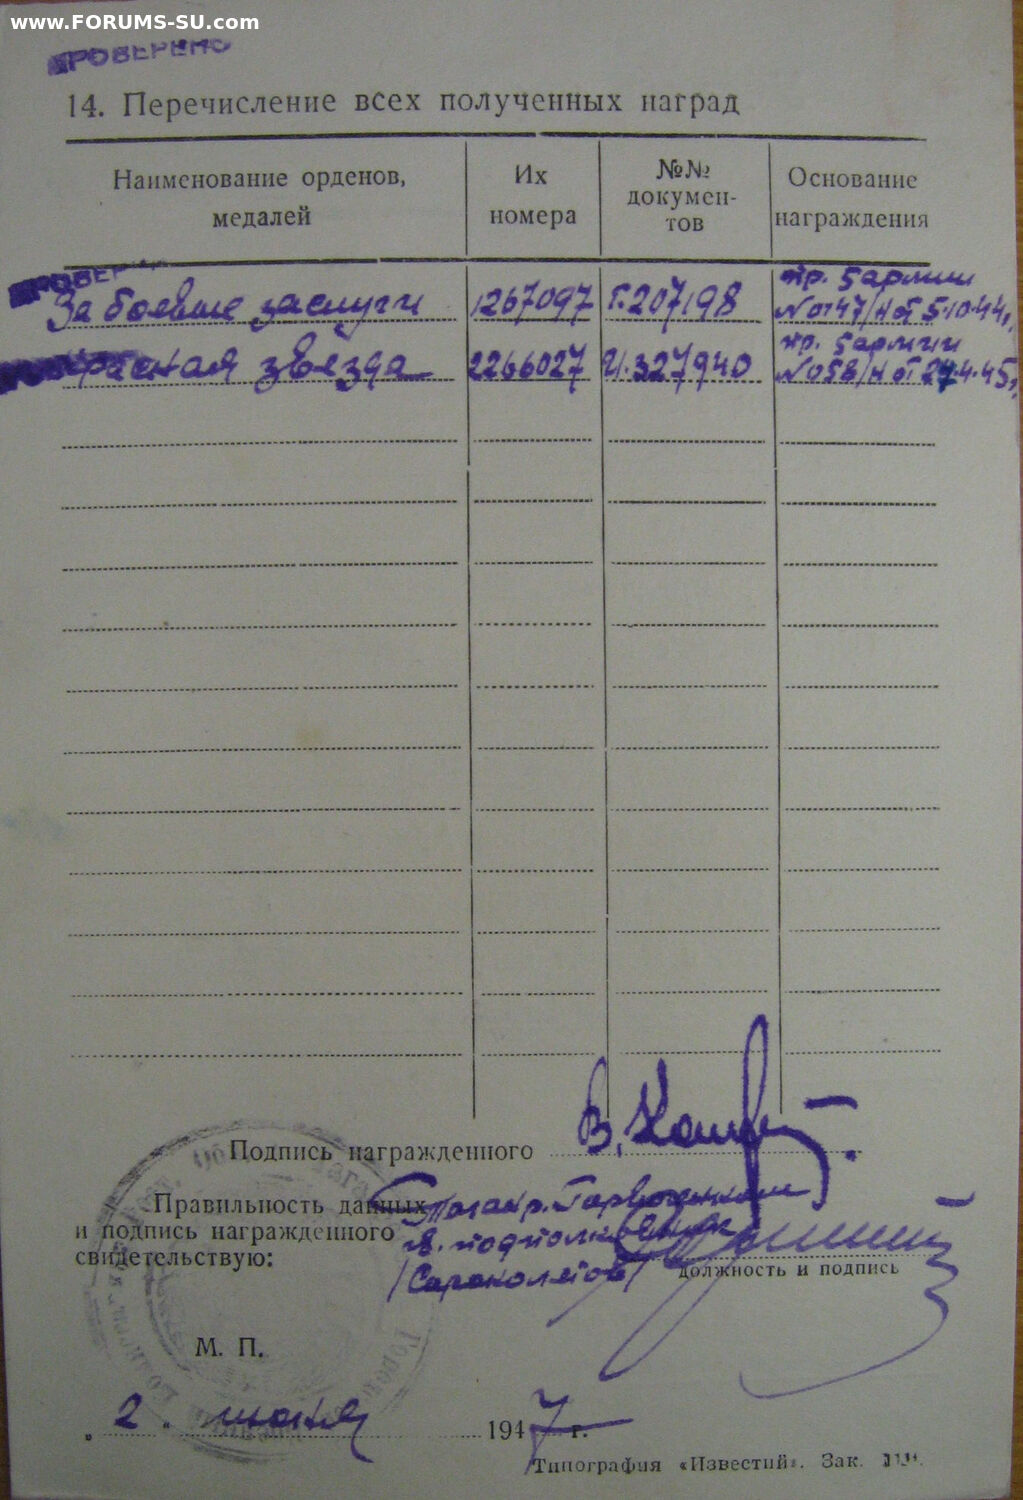 www.FORUMS-SU.com
ПРОВЕРЕНО
14. Перечисление всех полученных наград
Наименование орденов, медалей
Их номера
№№ докумен-тов
Основание награждения
ПРОВЕР
За боевые заслуги 1267097 Г.207198 пр. 5 армии №0147/н от 5.10.44г.
Красная звезда 2266027 И.327940 пр. 5 армии №058/н от 24.4.45г.
Подпись награжденного В.
Правильность данных
и подпись награжденного
свидетельствую:
Таганр. Горвоенком
подполковник
должность и подпись
М. П.
„ 2 " июня 1947 г.
Типография «Известий». Зак.